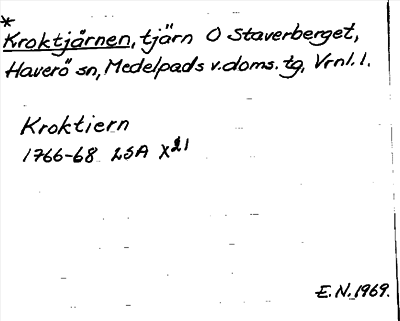 *
Kroktjärnen, tjärn O Staverberget,
Haverö sn, Medelpads v.doms. tg, Vrnl. l.
Kroktiern
1766-68 LSA X21
E.N. 1969.